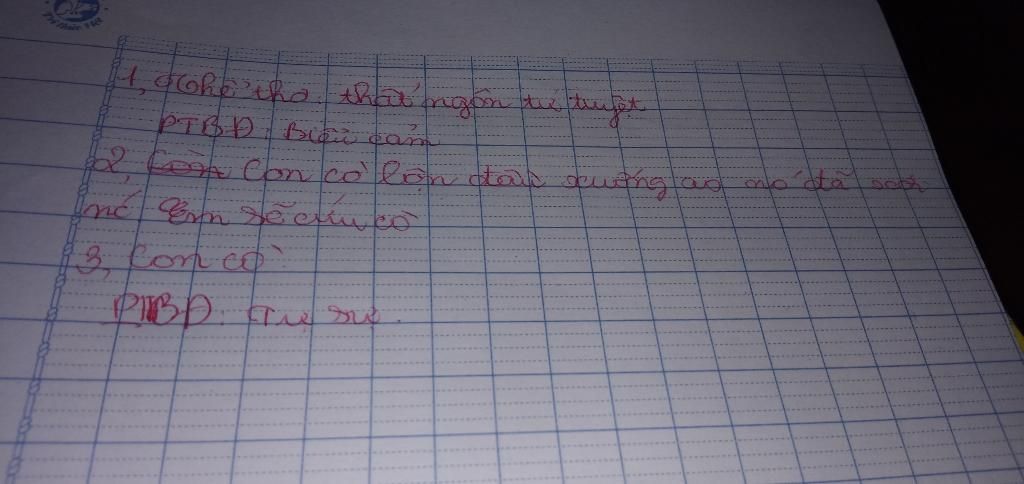 Trí Nhân Việt
1, Thể thơ: thất ngôn tứ tuyệt
PTBĐ: Biểu cảm
2, Con cò lộn đầu xuống ao nó đã
nó Em sẽ cứu cò
3, Con cò
PTBĐ: Tự sự.